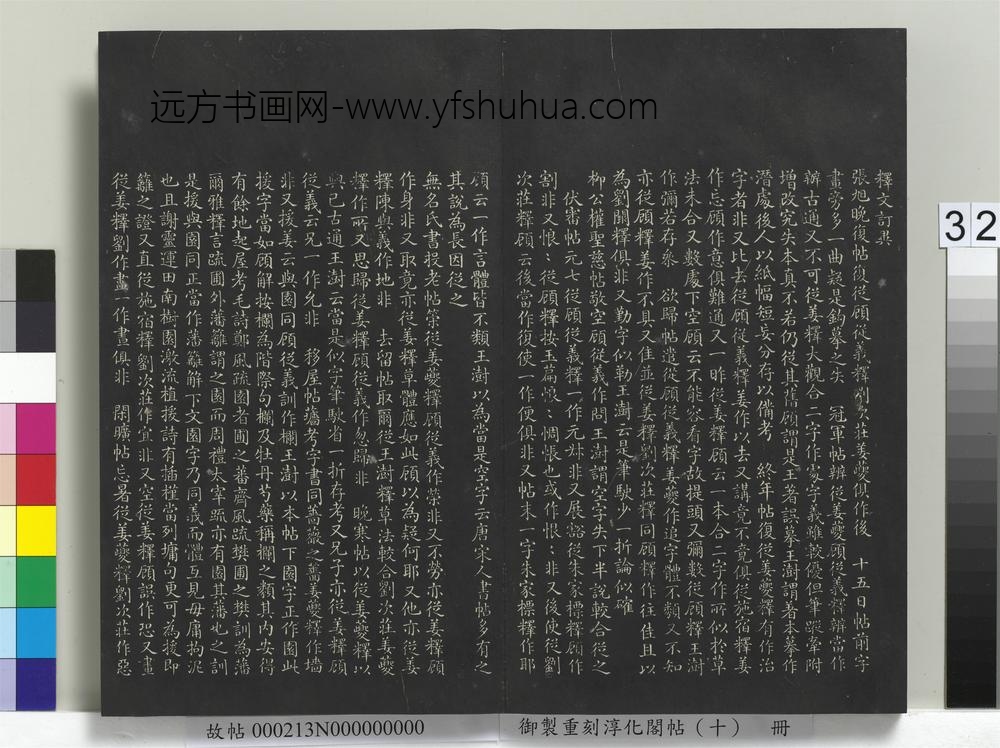 远方书画网-www.yfshuhua.com
釋文訂異
張旭晚復帖復從顧從義釋劉次莊姜夔俱作後 十五日帖前字
畫旁多一曲疑是鈎摹之失 冠軍帖辨從姜夔顧從義釋辨當作
辨古通又不可從姜釋大觀合二字作家字義雖較優但筆蹤牽附
增改究失本真不若仍從其舊顧謂是王著誤摹王澍謂著本奏作
潛處後人以紙幅短妄分存以備考 終年帖復從姜夔釋有作治
字者非又比去從顧從義釋姜作以去又講竟不竟俱從施宿釋姜
作忘顧作意俱難通又一昨從姜釋顧云一本合二字作所似於草
法未合又數處下空顧云不能容看字故提頭又彌數從顧釋王澍
作彌若存參 欲歸帖遣從顧從義釋姜夔作追字體不類又不知
亦從顧釋姜作不具又佳並從姜釋劉次莊釋同顧釋作往佳且以
為劉開釋俱非又勤字似勒王澍云是筆駛少一折論似確
柳公權聖慈帖敬空顧從義作問王澍謂空字失下半說較合從之
伏審帖元七從顧從義釋一作元妹非又展豁從朱家標釋顧作
割非又悵:從顧釋按玉篇悵:惆悵也或作悵:非又後使從劉
次莊釋顧云後當作復使一作便俱非又帖末一字朱家標釋作耶
顧云一作言體皆不類王澍以為當是空字云唐宋人書帖多有之
其說為長因從之
無名氏書投老帖策從姜夔釋顧從義作榮非又不勞亦從姜釋顧
作身非又取竟亦從姜釋草體應如此顧以為疑何耶又他亦從姜
釋陳與義作地非 去留帖取爾從王澍釋草法較合劉次莊姜夔
釋作所又思歸從姜釋顧從義作忽歸非 晚寒帖以從姜夔釋以
與已古通王澍云當是似字筆駛省一折存考又兄子亦從姜釋顧
從義云兄一作允非 移屋帖牆考字書同薔薇之薔姜夔釋作墻
非又援姜云與園同顧從義訓作欄王澍以本帖下園字正作園此
援字當如顧解按欄為階際句欄及牡丹芍藥稱欄之類其內安得
有餘地起屋考毛詩鄭風疏園者圃之蕃齊風疏樊圃之樊訓為藩
爾雅釋言疏圃外藩籬謂之園而周禮太宰疏亦有園其藩也之訓
是援與園同正當作藩籬解下文園字乃同義而體互見毋庸拘泥
也且謝靈運田南樹園激流植援詩有插槿當列墉句更可為援即
籬之證又直從施宿釋劉次莊作宜非又空從姜釋顧誤作恐又畫
從姜釋劉作晝一作書俱非 閑曠帖忘暑從姜夔釋劉次莊作惡
32
故帖 000213N000000000
御製重刻淳化閣帖(十) 冊